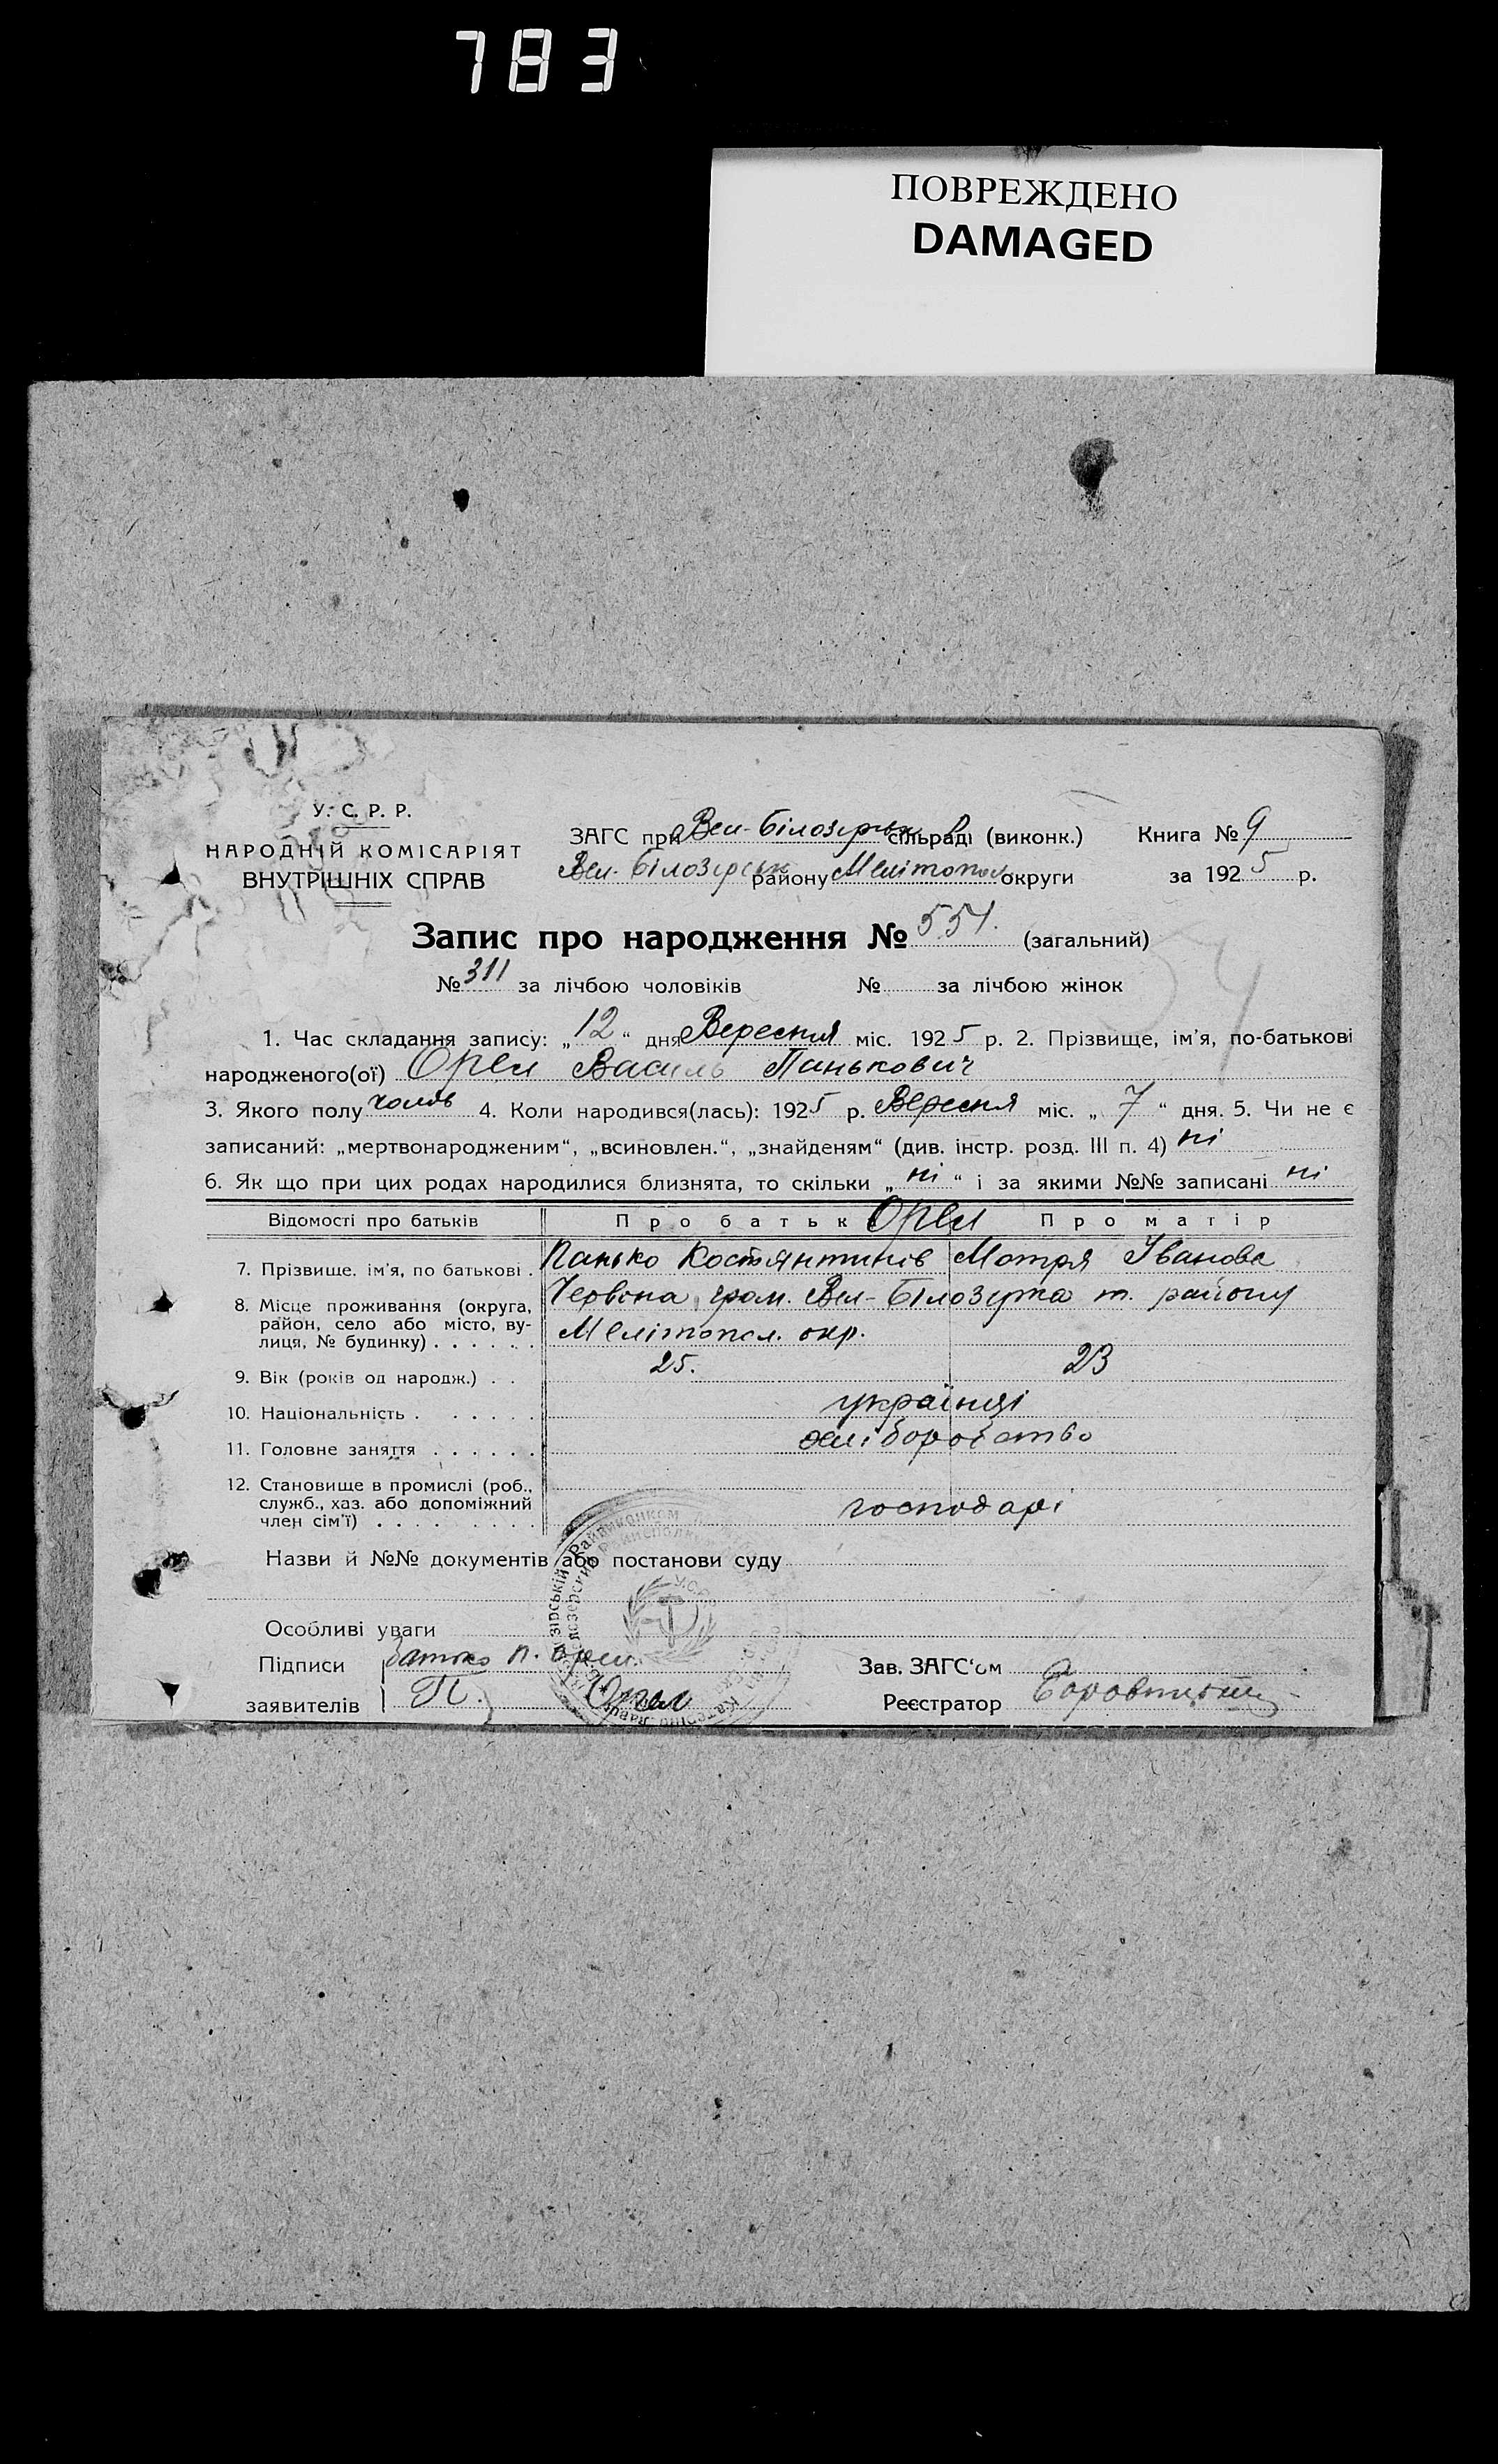 783
ПОВРЕЖДЕНО
DAMAGED
У. С. Р. Р.
НАРОДНІЙ КОМІСАРІЯТ
ВНУТРІШНІХ СПРАВ
ЗАГС при Вел-Білозірськ сільраді (виконк.) Книга № 9
Вел-Білозірськ району Мелітопол. округи за 1925 р.
Запис про народження № 551. (загальний)
№ 311 за лічбою чоловіків № за лічбою жінок
1. Час складання запису: „12“ дня Вересня міс. 1925 р. 2. Прізвище, ім'я, по-батькові
народженого(ої) Орел Василь Панькович
3. Якого полу чолов 4. Коли народився(лась): 1925 р. Вересня міс. „7“ дня. 5. Чи не є
записаний: „мертвонародженим“, „всиновлен.“, „знайденям“ (див. інстр. розд. III п. 4) ні
6. Як що при цих родах народилися близнята, то скільки „ні“ і за якими №№ записані ні
Відомості про батьків Про батьк Орел Про матір
7. Прізвище. ім'я, по батькові . Панько Костянтинів Мотря Іванова
8. Місце проживання (округа, район, село або місто, вулиця, № будинку) . . . . . . Червона гром. Вел-Білозірка т. району
Мелітопол. окр.
9. Вік (років од народж.) . . 25. 23
10. Національність . . . . . . українці
11. Головне заняття . . . . . . хліборобство
12. Становище в промислі (роб., служб., хаз. або допоміжний член сім'ї) . . . . . . . . господарі
Назви й №№ документів або постанови суду
Особливі уваги
Підписи Батько П. Орел. Зав. ЗАГС'ом
заявителів П. Орел Реєстратор